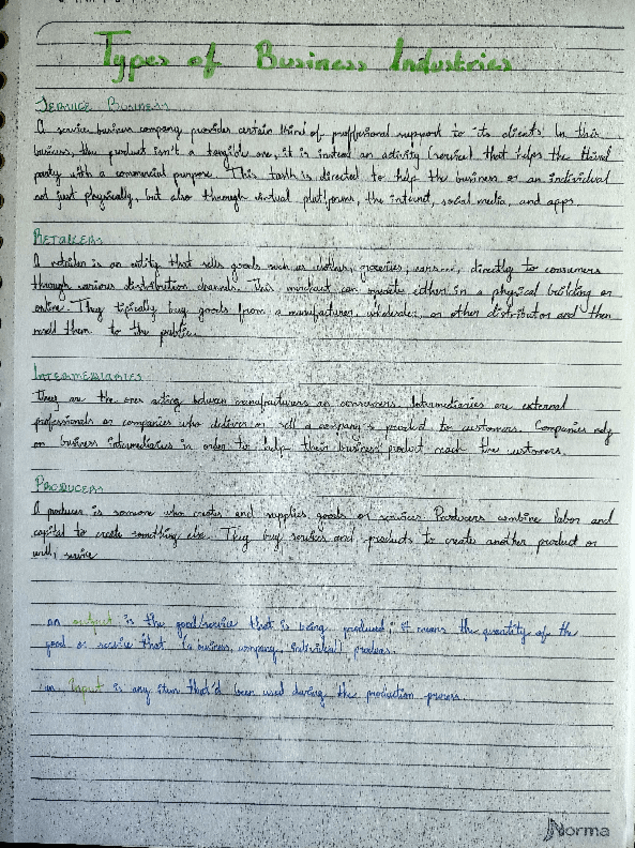 Types of Business Industries
SERVICE BUSINESS
A service business company provides certain kind of proffesional support to its clients. In this
business, the product isn't a tangible one, it is instead an activity (service) that helps the third
party with a commercial purpose. This task is directed to help the business or an individual
not just physically, but also through virtual platforms, the internet, social media, and apps.
RETAILERS
A retailer is an entity that sells goods such as clothes, groceries, directly to consumers
through various distribution channels. This merchant can operate either in a physical building or
online. They tipically buy goods from a manufacturer, wholesaler, or other distributor and then
resell them to the public.
INTERMEDIARIES
They are the ones acting between manufacturers an consumers. Intermediaries are external
professionals or companies who deliver or sell a company's product to customers. Companies rely
on business intermediaries in order to help their business' product reach the customers.
PRODUCERS
A producer is someone who creates and supplies goods or services. Producers combine labor and
capital to create something else. They buy services and products to create another product or
well, service
an output is the good/service that is being produced; it means the quantity of the
good or service that (a business, company, individual) produces.
an Input is any item that'd been used during the production process.
Norma